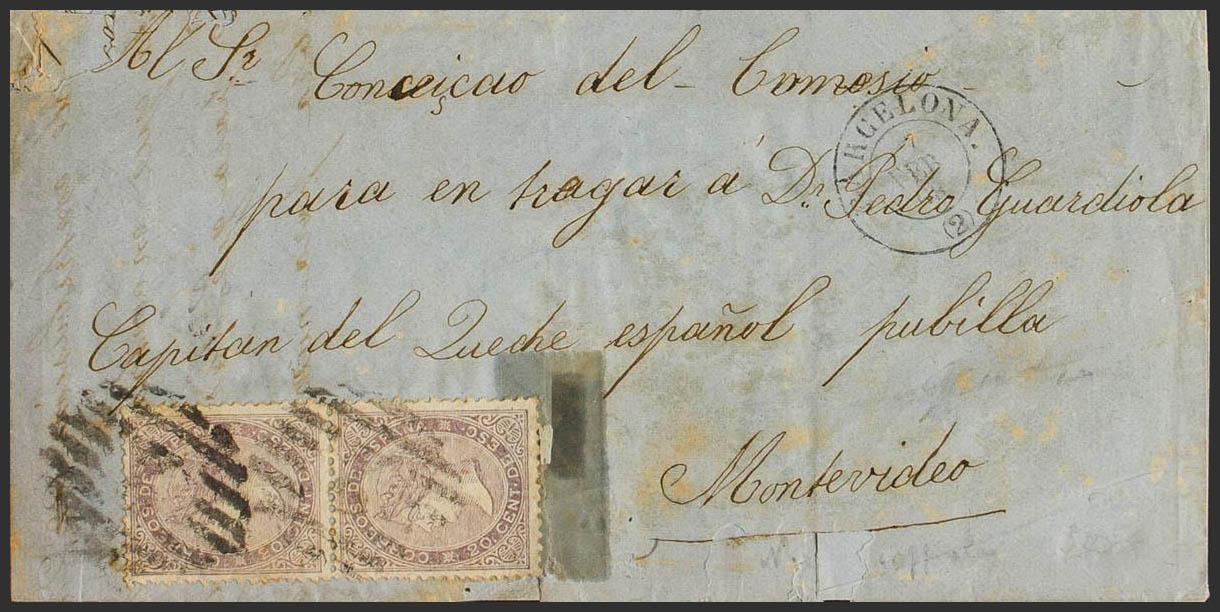 Al Sr Conceiçao del - Comosio -
para en tragar á Dn Pedro Guardiola
Capitan del Queche español pubilla
Montevideo
BARCELONA.
7
FEB
(2)
CORREOS DE ESPAÑA
20 CENT. DE ESO.
CORREOS DE
20 CENT. DE ESO.